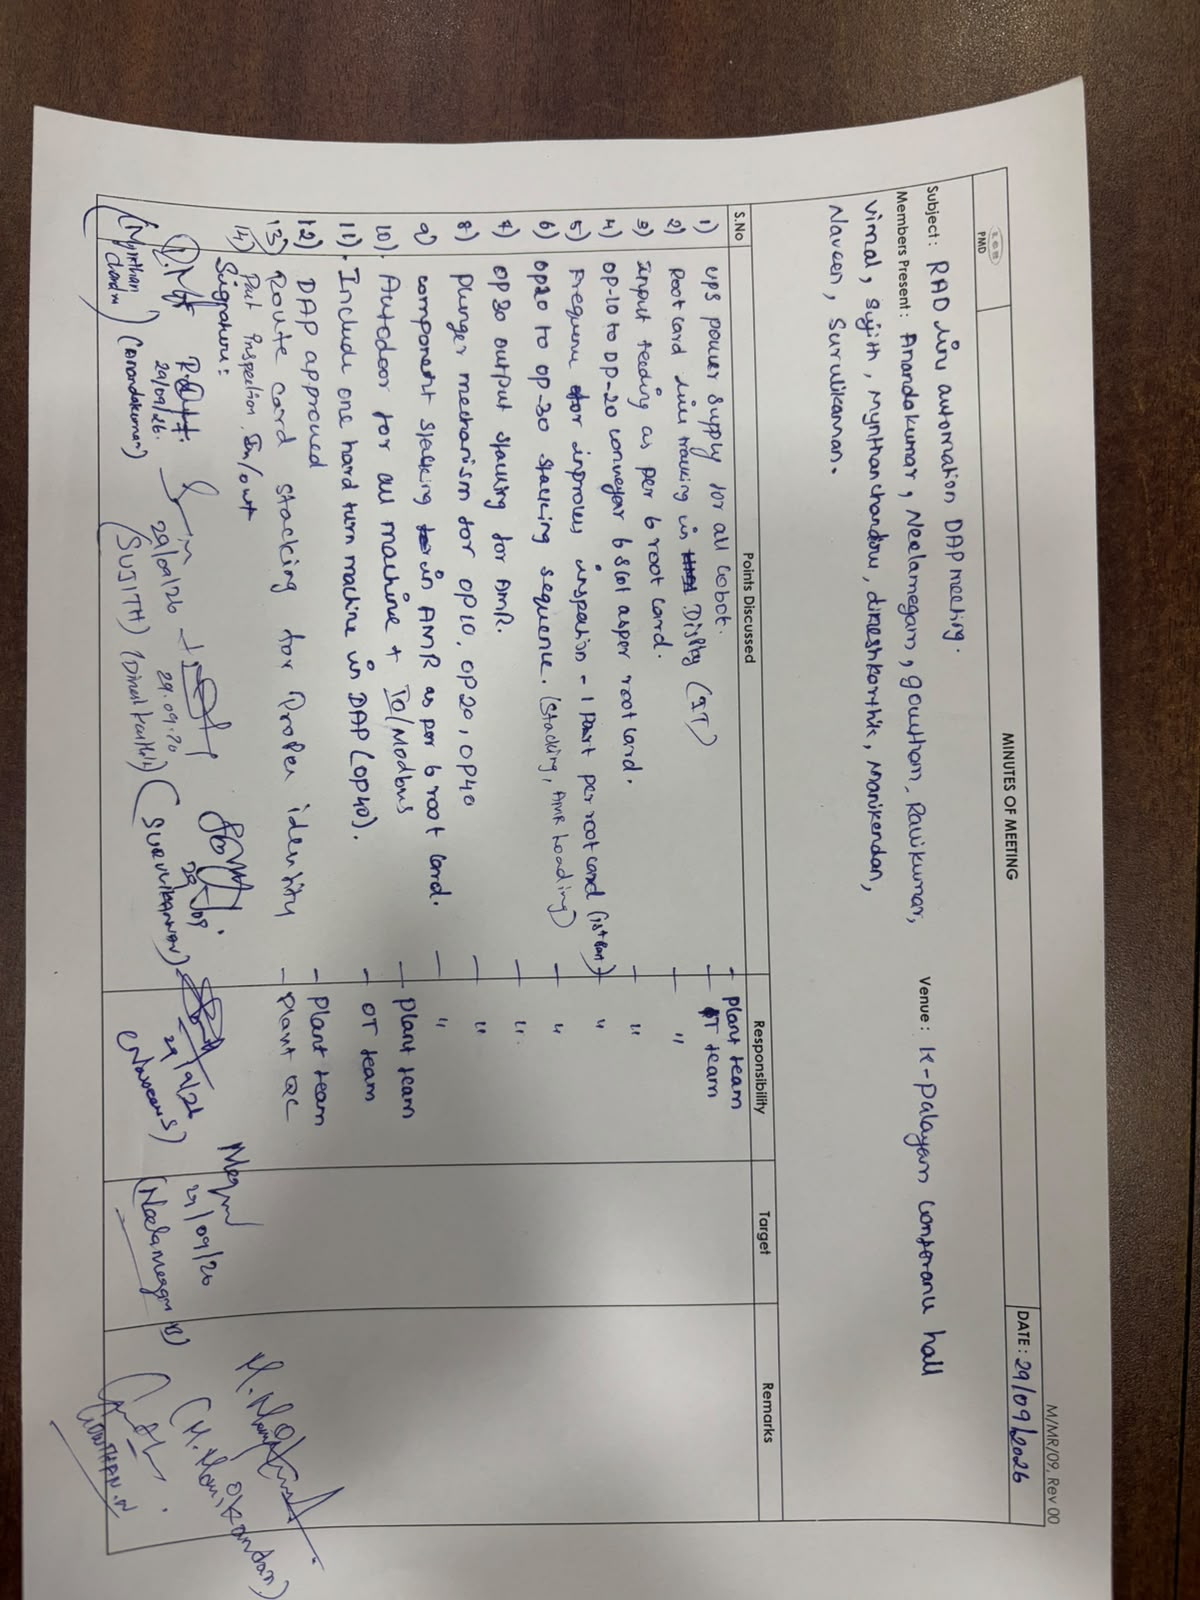 M/MR/09, Rev 00
PMD
MINUTES OF MEETING
DATE : 29/09/2026
Subject : RAD line automation DAP meeting.
Venue : K-Palayam conference hall
Members Present : Anandakumar, Neelamegam, gowtham, Ravikumar,
Vimal, Sujith, Mynthanchandru, dineshkarthik, Manikandan,
Naveen, Surulikannan.
S.No Points Discussed Responsibility Target Remarks
1) UPS power supply for all cobot. - plant team
2) Root card line tracking in Display (IT) - IT team
3) Input feeding as per 6 root card. - "
4) OP-10 to OP-20 conveyar 6 slot as per root card. - "
5) Frequency for inprocess inspection - 1 part per root card (1st part) - "
6) OP20 to OP-30 stacking sequence. (Stacking, AMR Loading) - "
7) OP30 output stacking for AMR. - "
8) Plunger mechanism for OP10, OP20, OP40 - "
9) component stacking in AMR as per 6 root card. - "
10) Autodoor for all machine + IO/Modbus - plant team
11) Include one hard turn machine in DAP (OP40). - OT team
12) DAP approved - Plant team
13) Route card stacking for Proper identity - Plant QC
14) Part Inspection In/out
Signature :
29/09/26.
29/09/26
29/9/26
29/09/26
(Mynthan chandru) (Anandakumar) (SUJITH) (Dinesh karthik) (SURULIKANNAN) (Naveen S) (Neelamegam B) (M. Manikandan)
GOWTHAM.N